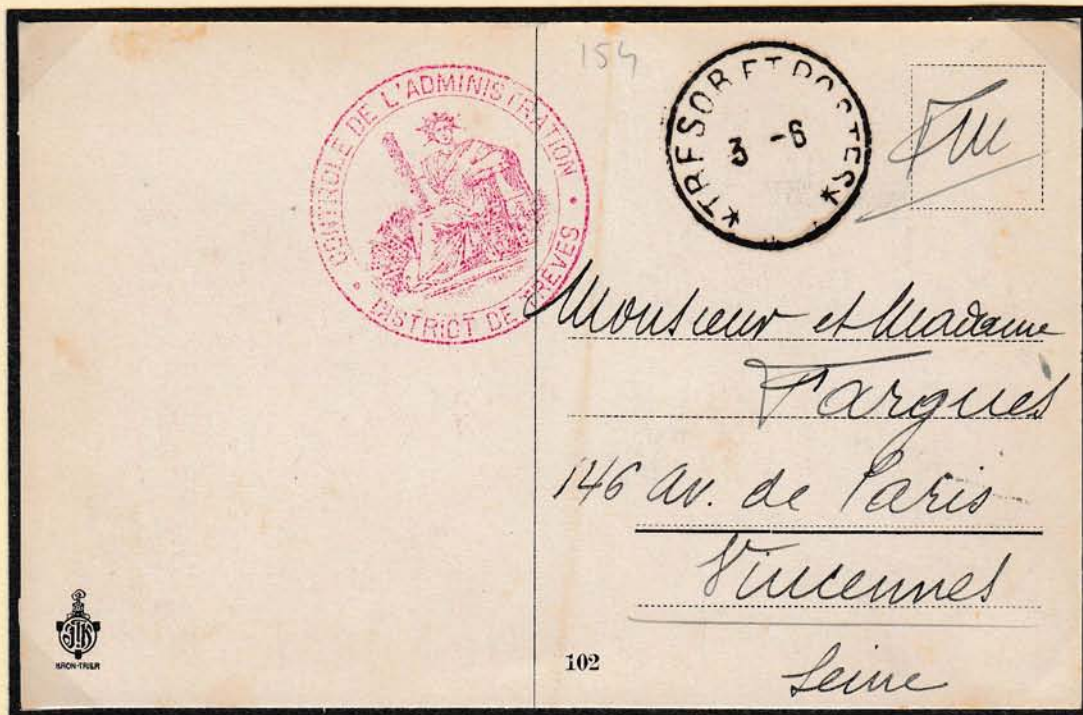 154
CONTROLE DE L'ADMINISTRATION
• DISTRICT DE TRÈVES •
*TRESOR ET POSTES*
3 -6
FM
Monsieur et Madame
Fargues
146 av. de Paris
Vincennes
Seine
KRON-TRIER
102